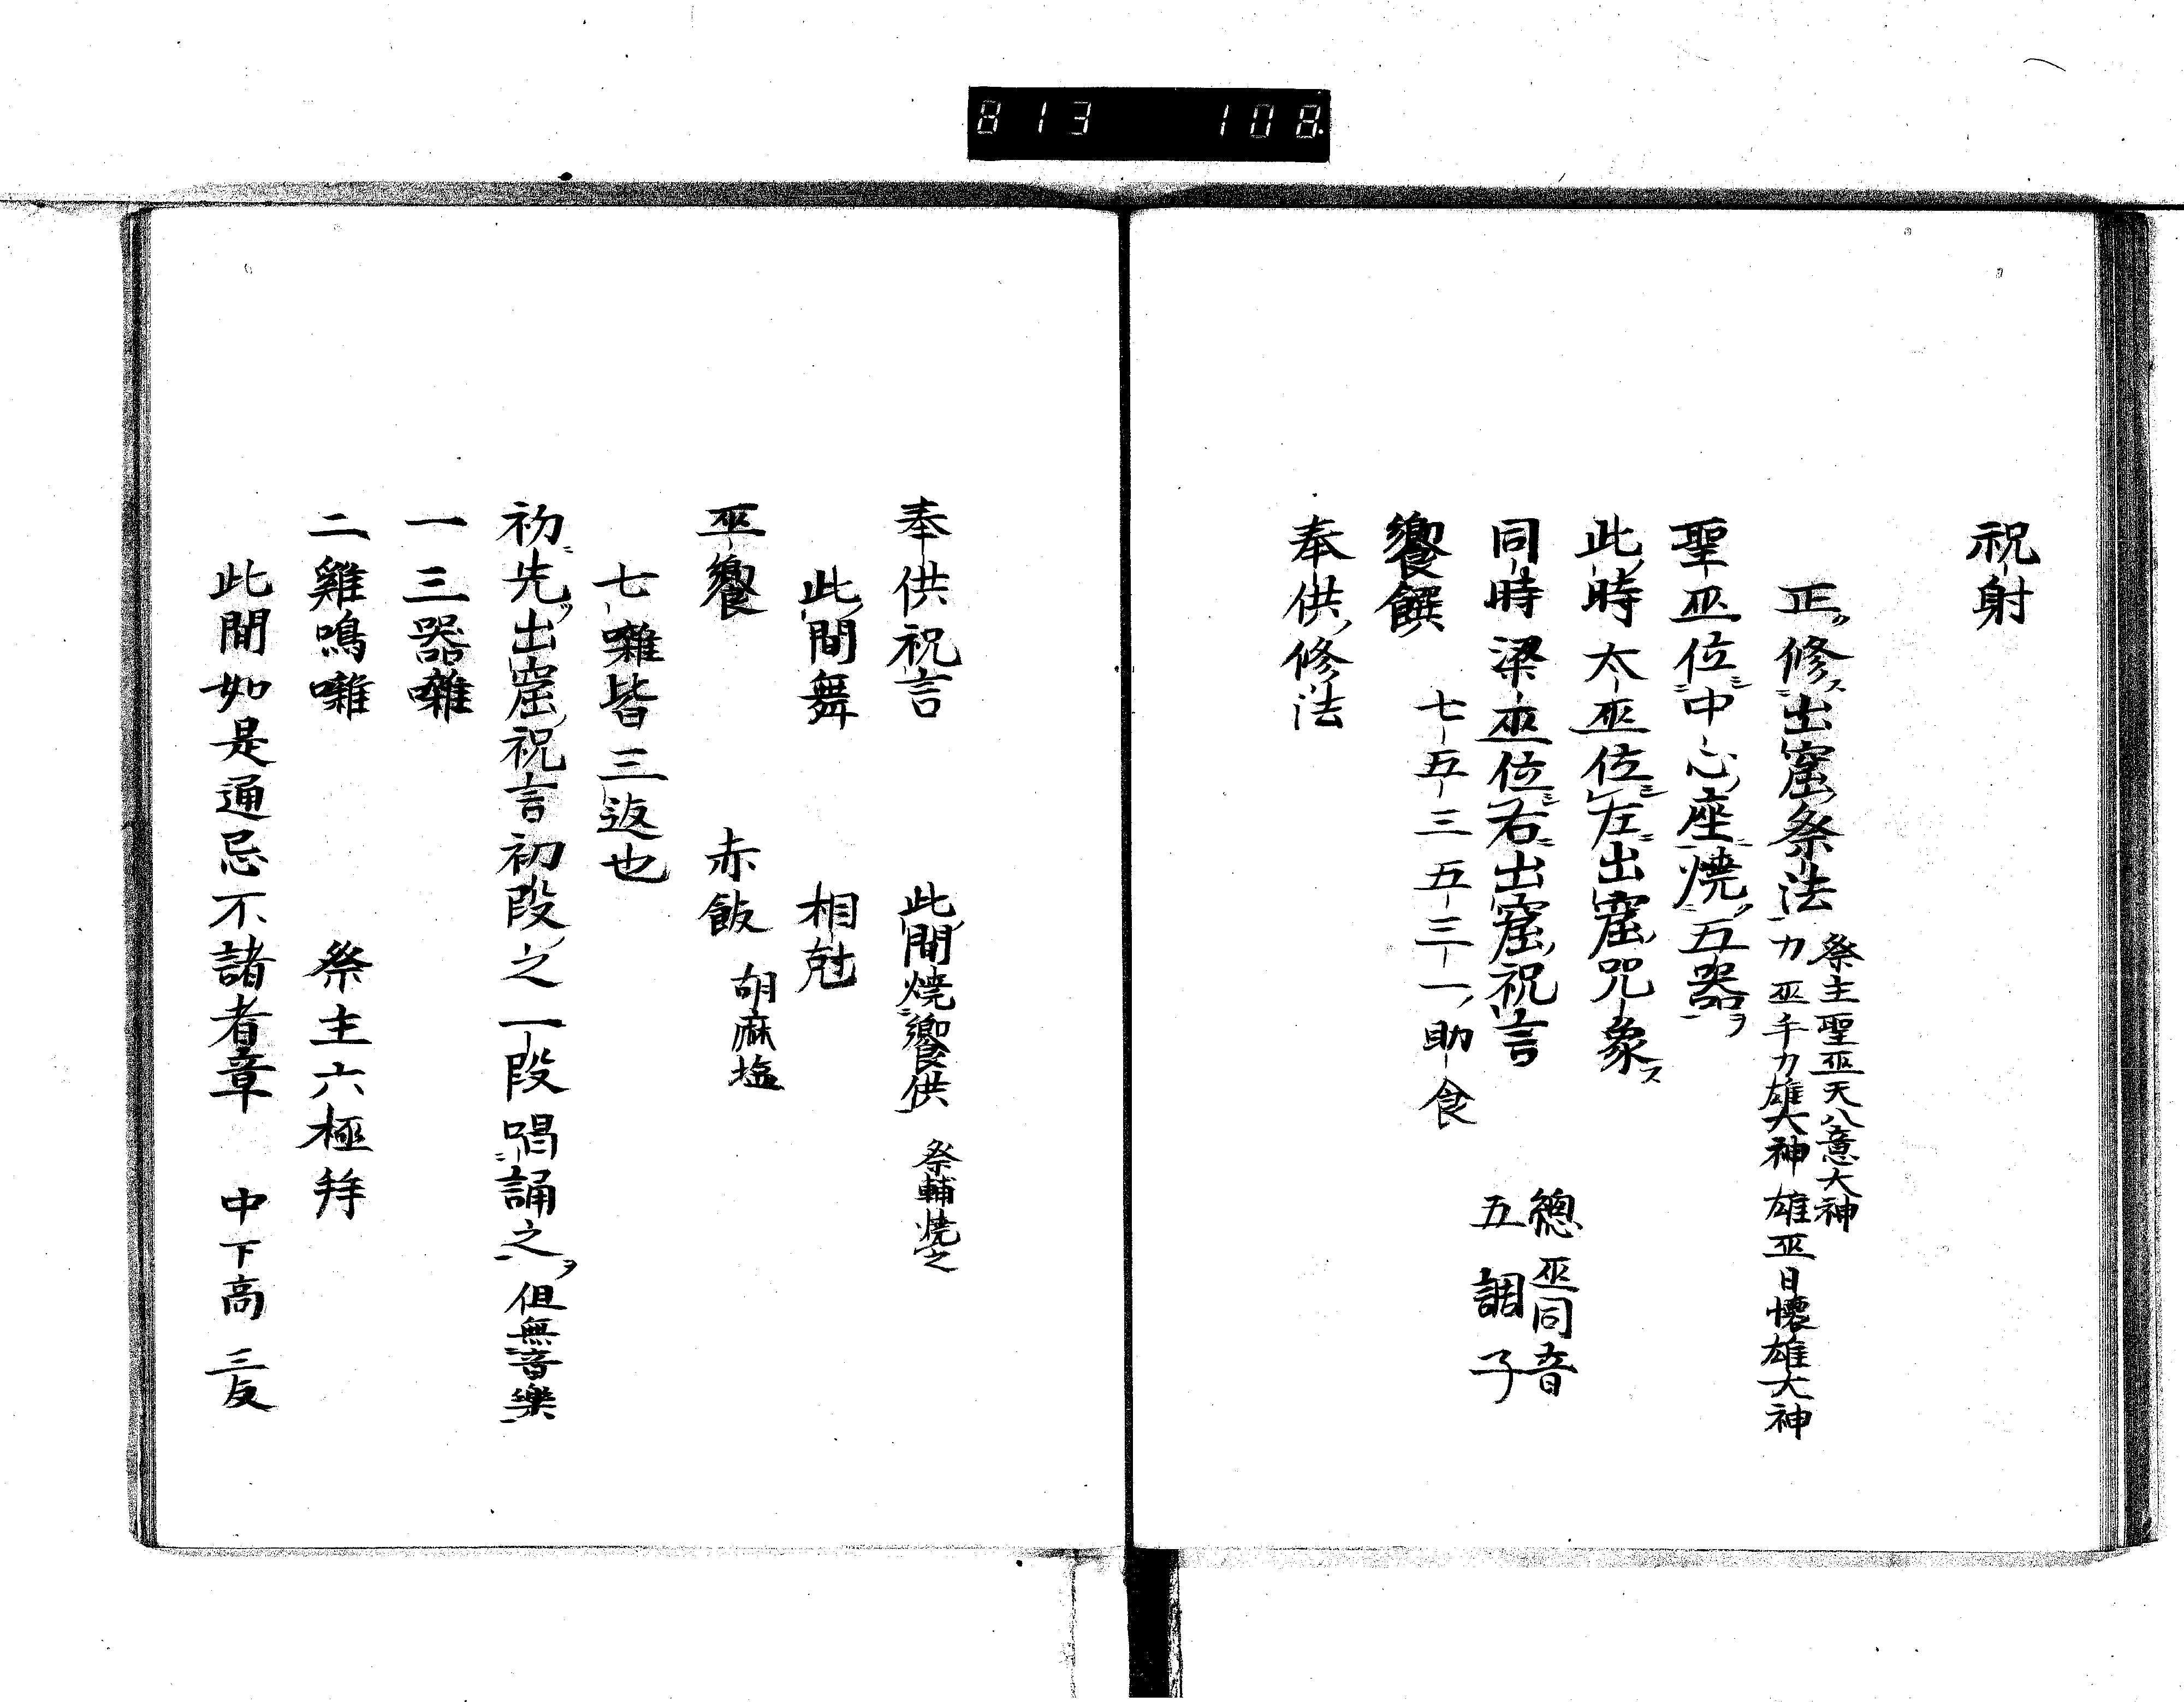 813 108.
祝射
正修出窟祭法
祭主聖巫天八意大神
力巫手力雄大神 雄巫日懷雄大神
聖巫位中心座燒五器ヲ
此時太巫位左出窟咒象ス
同時梁巫位右出窟祝言
總巫同音
五調子
饗饌 七五三五三一助食
奉供修法
奉供祝言 此間燒饗供 祭輔燒之
此間舞 相尅
巫饗 赤飯 胡麻塩
七囃皆三返也
初先出窟祝言初段之一段唱誦之ヲ 但無音樂
一三器囃
二雞鳴囃 祭主六極拜
此間如是通忌不諸者章 中下高 三反